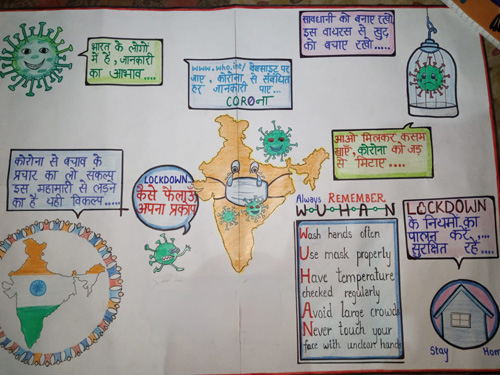 भारत के लोगों
में है, जानकारी
का आभाव....
www.who.int/ वेबसाइट पर
जाए, कोरोना से संबंधित
हर जानकारी पाए...
CORONA
सावधानी को बनाए रखो
इस वायरस से खुद
को बचाए रखो.....
आओ मिलकर कसम
खाएँ, कोरोना को जड़
से मिटाए....
कोरोना से बचाव के
प्रचार का लो संकल्प
इस महामारी से लड़ने
का है यही विकल्प.....
LOCKDOWN
कैसे फैलाऊँ
अपना प्रकोप
Always REMEMBER
W-U-H-A-N
Wash hands often
Use mask properly
Have temperature
checked regularly
Avoid large crowds
Never touch your
face with unclear hands
LOCKDOWN
के नियमों का
पालन करें,...
सुरक्षित रहें....
Stay Home